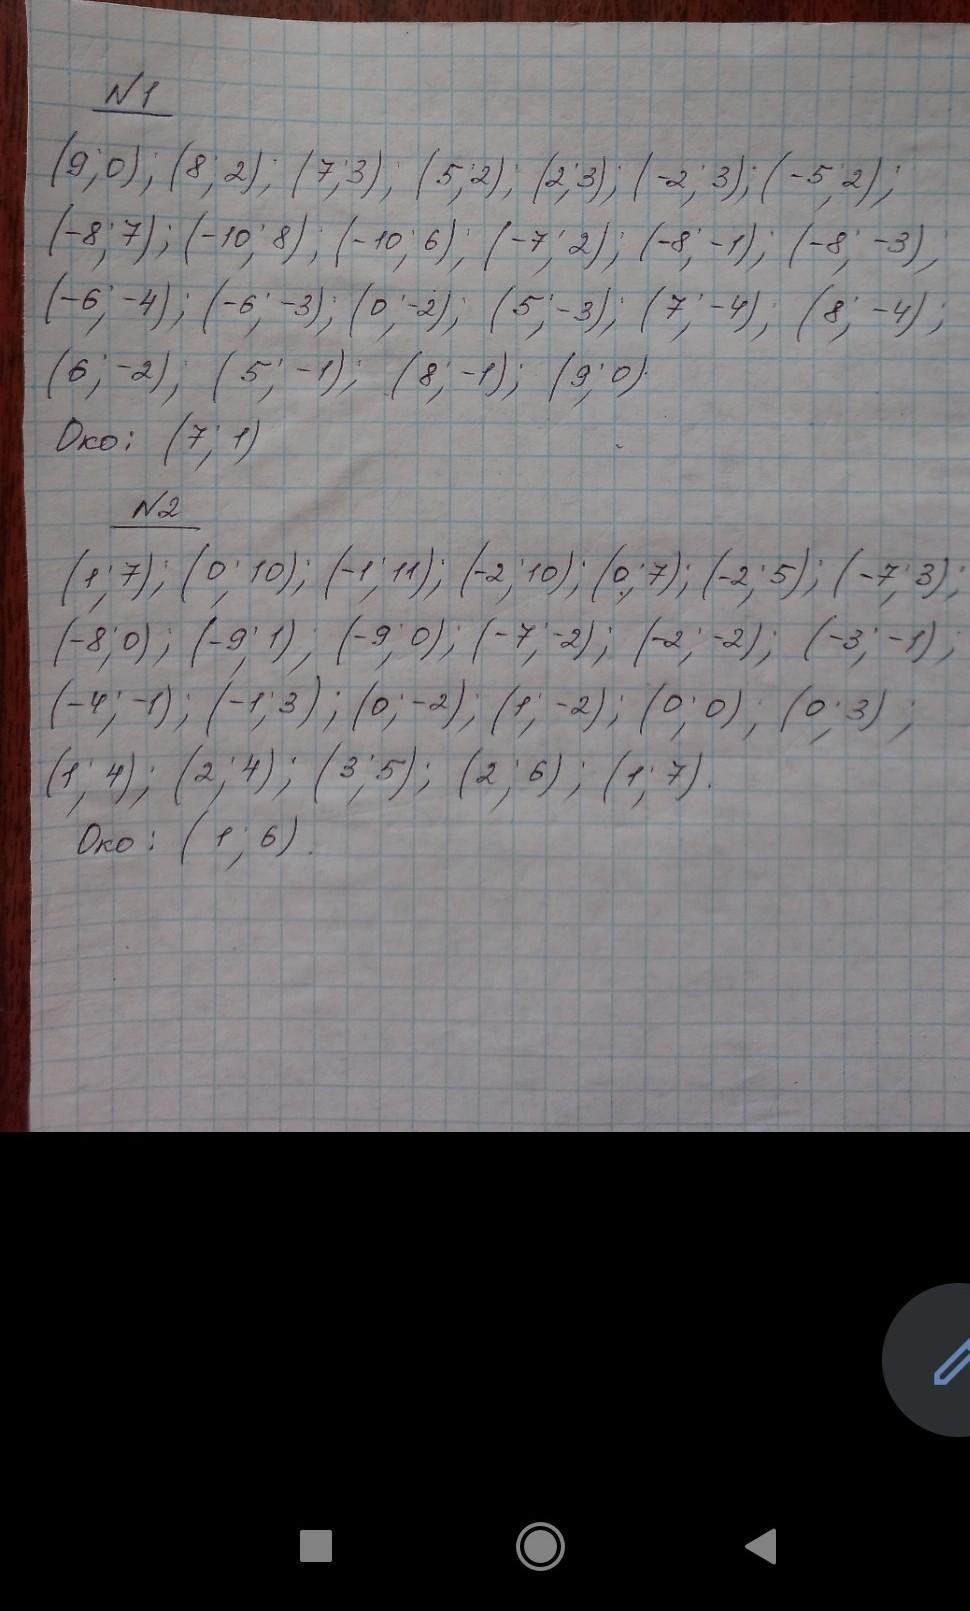 №1
(9; 0); (8; 2); (7; 3); (5; 2); (2; 3); (-2; 3); (-5; 2);
(-8; 7); (-10; 8); (-10; 6); (-7; 2); (-8; -1); (-8; -3);
(-6; -4); (-6; -3); (0; -2); (5; -3); (7; -4); (8; -4);
(6; -2); (5; -1); (8; -1); (9; 0).
Око: (7; 1)
№2
(1; 7); (0; 10); (-1; 11); (-2; 10); (0; 7); (-2; 5); (-7; 3);
(-8; 0); (-9; 1); (-9; 0); (-7; -2); (-2; -2); (-3; -1);
(-4; -1); (-1; 3); (0; -2); (1; -2); (0; 0); (0; 3);
(1; 4); (2; 4); (3; 5); (2; 6); (1; 7).
Око: (1; 6).